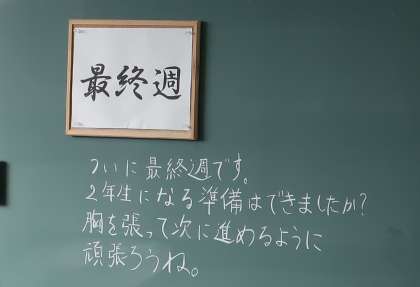 最終週
ついに最終週です。
2年生になる準備はできましたか?
胸を張って次に進めるように
頑張ろうね。